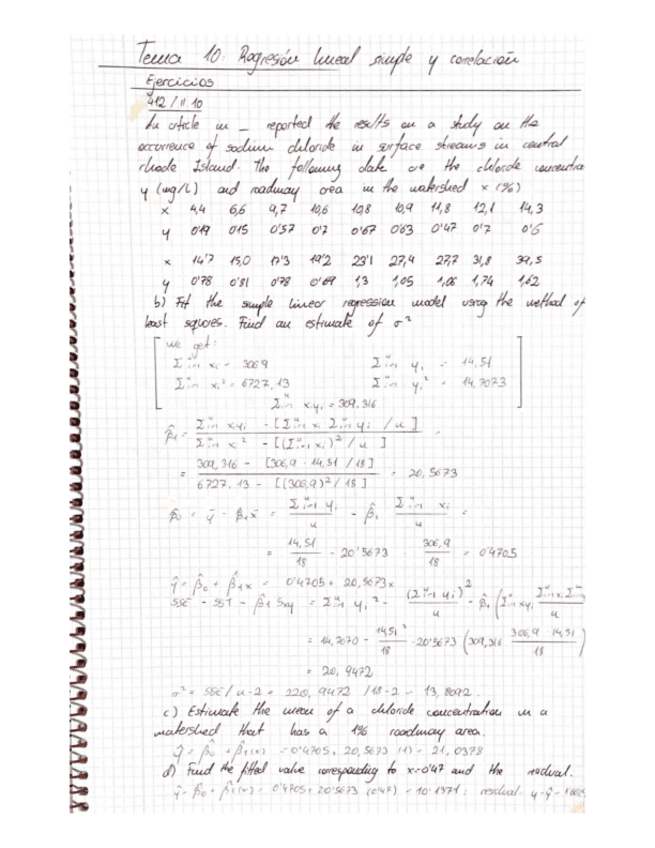 Tema 10: Regresión lineal simple y correlación
Ejercicios
412 / 11.10
An article in _ reported the results on a study on the
occurrence of sodium chloride in surface streams in central
rhode Island. The following data are the chloride concentra
y (mg/L) and roadway area in the watershed x (%)
x 4,4 6,6 9,7 10,6 10,8 10,9 11,8 12,1 14,3
y 0'19 0'15 0'57 0'7 0'67 0'63 0'47 0'7 0'6
x 14'7 15,0 17'3 19'2 23'1 27,4 27,7 31,8 39,5
y 0'78 0'81 0'78 0'69 1,3 1,05 1,06 1,74 1,62
b) Fit the simple linear regression model using the method of
least squares. Find an estimate of σ²
we get:
Σⁿᵢ₌₁ xᵢ = 306,9 Σⁿᵢ₌₁ yᵢ = 14,51
Σⁿᵢ₌₁ xᵢ² = 6727,13 Σⁿᵢ₌₁ yᵢ² = 14,7073
Σⁿᵢ₌₁ xᵢyᵢ = 309,316
β̂₁ = (Σⁿᵢ₌₁ xᵢyᵢ - [Σⁿᵢ₌₁ xᵢ Σⁿᵢ₌₁ yᵢ / n]) / (Σⁿᵢ₌₁ xᵢ² - [(Σⁿᵢ₌₁ xᵢ)² / n]) =
= (309,316 - [306,9 · 14,51 / 18]) / (6727,13 - [(306,9)² / 18]) = 20,5673
β̂₀ = ȳ - β̂₁x̄ = (Σⁿᵢ₌₁ yᵢ) / n - β̂₁ (Σⁿᵢ₌₁ xᵢ) / n =
= 14,51 / 18 - 20'5673 · 306,9 / 18 = 0'4705
ŷ = β̂₀ + β̂₁x = 0'4705 + 20,5673x
SSE = SST - β̂₁ Sxy = Σⁿᵢ₌₁ yᵢ² - (Σⁿᵢ₌₁ yᵢ)² / n - β̂₁ (Σⁿᵢ₌₁ xᵢyᵢ Σⁿᵢ₌₁ xᵢ Σⁿᵢ₌₁ / n
= 14,7070 - 14,51² / 18 - 20'5673 (309,316 306,9 · 14,51 / 18)
= 20,9472
σ² = SSE / n-2 = 220,9472 / 18-2 = 13,8092.
c) Estimate the mean of a chloride concentration in a
watershed that has a 1% roadway area.
ŷ = β̂₀ + β̂₁(x) = 0'4705 + 20,5673 (1) = 21,0378
d) Find the fitted value corresponding to x=0'47 and the residual.
ŷ = β̂₀ + β̂₁(x) = 0'4705 + 20'5673 (0'47) = 10'1371; residual = y-ŷ =